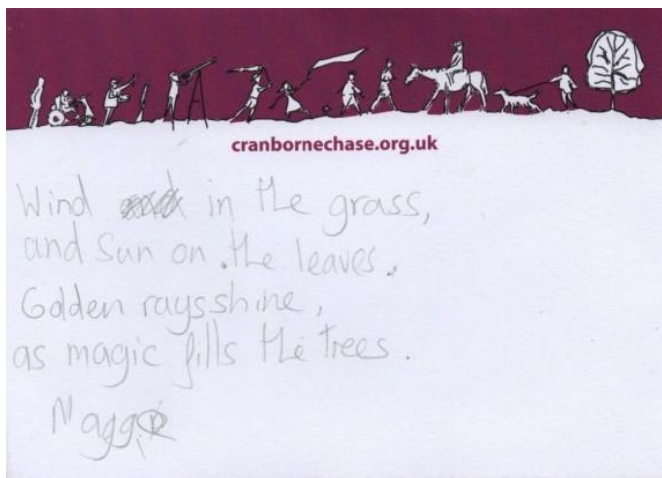 cranbornechase.org.uk
Wind in the grass,
and Sun on the leaves.
Golden rays shine,
as magic fills the trees.
Maggie